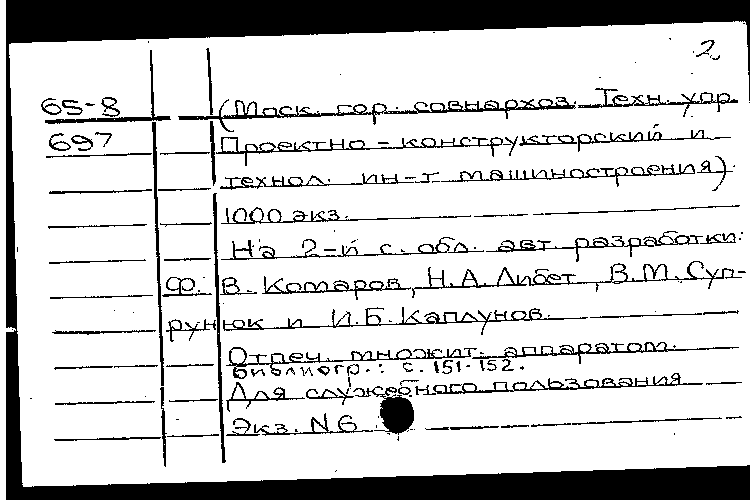 2
65-8 (Моск. гор. совнархоз. Техн. упр.
697 Проектно-конструкторский и
технол. ин-т машиностроения).
1000 экз.
На 2-й с. обл. авт. разработки:
Ф. В. Комаров, Н.А. Либет, В.М. Суп-
рунюк и И.Б. Каплунов.
Отпеч. множит. аппаратом.
Библиогр.: с. 151-152.
Для служебного пользования
Экз. N 6